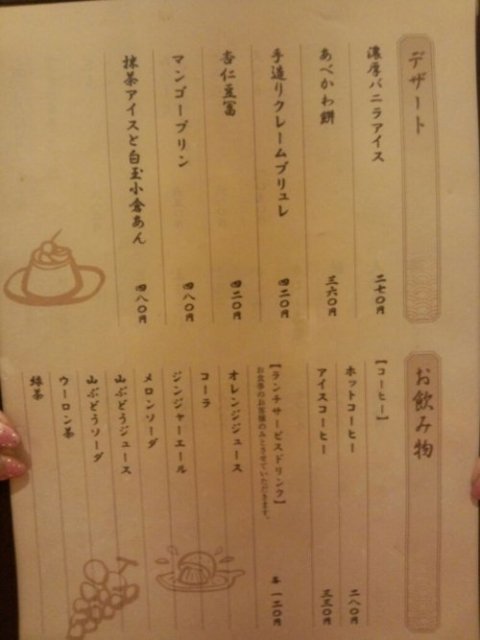 デザート
濃厚バニラアイス 二七〇円
あべかわ餅 三六〇円
手造りクレームブリュレ 四二〇円
杏仁豆冨 四二〇円
マンゴープリン 四八〇円
抹茶アイスと白玉小倉あん 四八〇円
お飲み物
【コーヒー】
ホットコーヒー 二八〇円
アイスコーヒー 三三〇円
【ランチサービスドリンク】 各 一二〇円
お食事のお客様のみとさせていただきます。
オレンジジュース
コーラ
ジンジャーエール
メロンソーダ
山ぶどうジュース
山ぶどうソーダ
ウーロン茶
緑茶